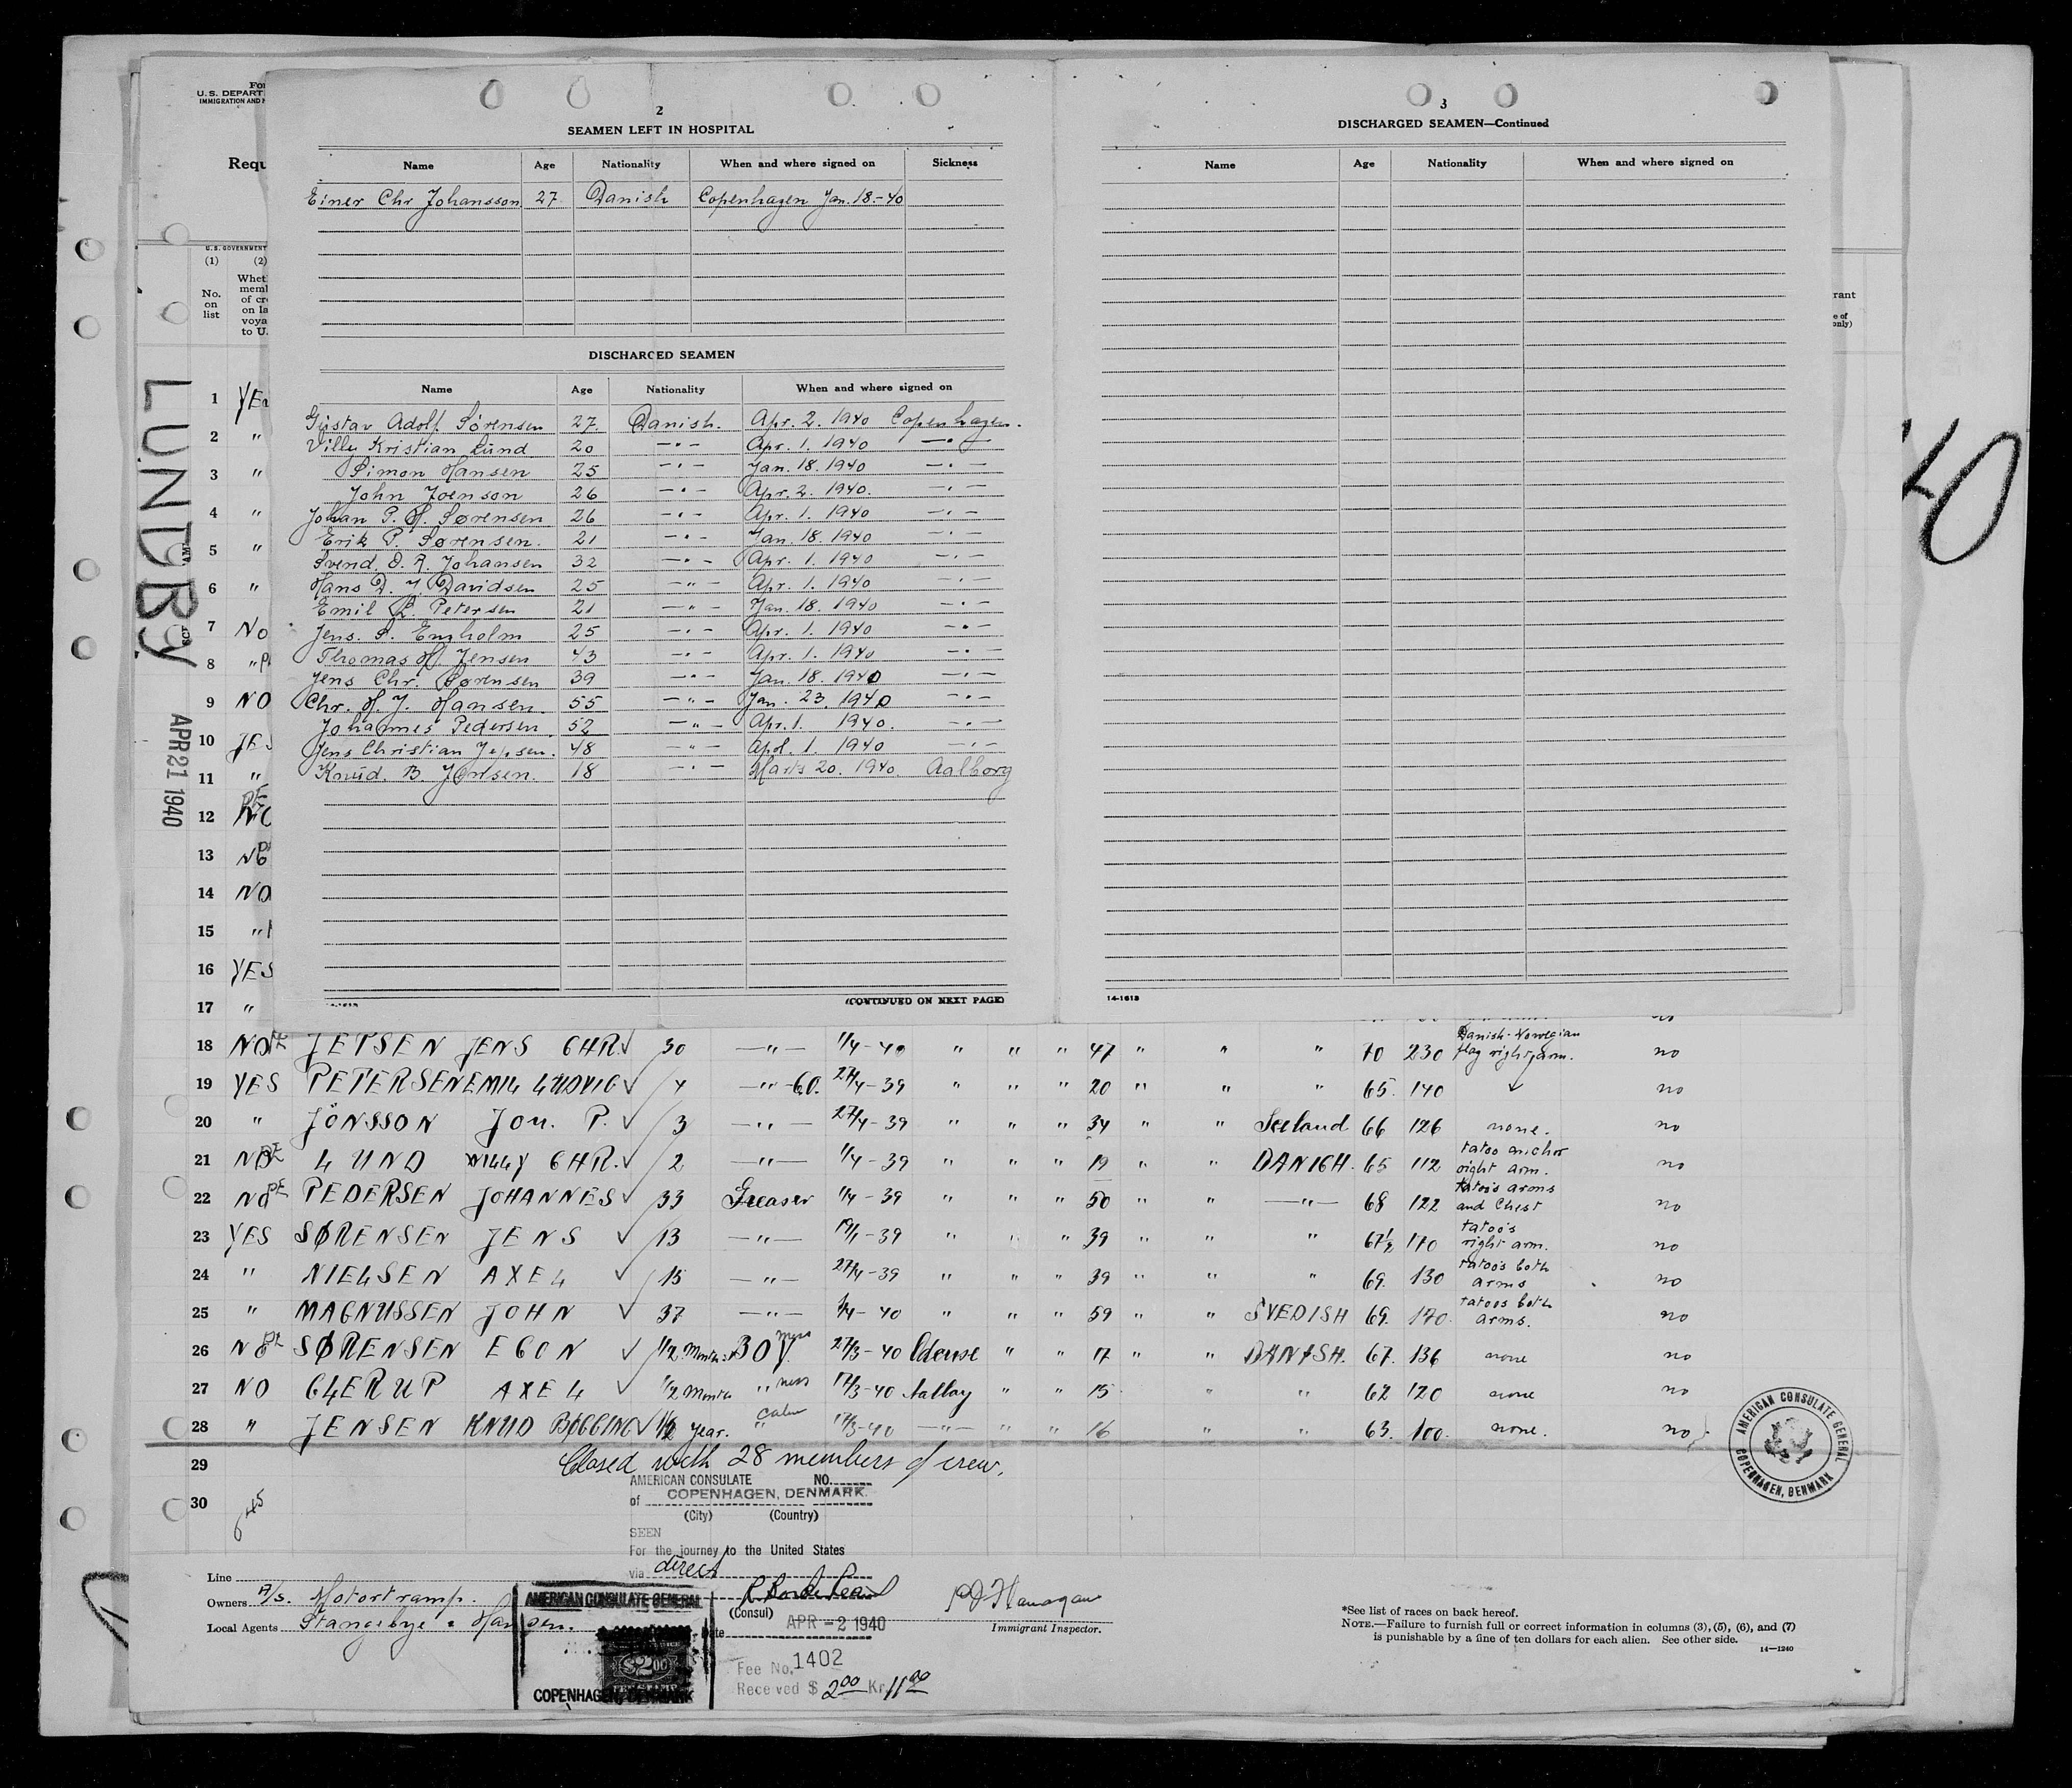 2
SEAMEN LEFT IN HOSPITAL
Name Age Nationality When and where signed on Sickness
Einer Chr Johansson 27 Danish Copenhagen Jan. 18.-40
DISCHARGED SEAMEN
Name Age Nationality When and where signed on
Gustav Adolf Sørensen 27 Danish. Apr. 2. 1940 Copenhagen.
Villy Kristian Lund 20 —"— Apr. 1. 1940 —"—
Simon Hansen 25 —"— Jan. 18. 1940 —"—
John Joenson 26 —"— Apr. 2. 1940. —"—
Johan P. H. Sørensen 26 —"— Apr. 1. 1940 —"—
Erik P. Sørensen. 21 —"— Jan. 18. 1940 —"—
Svend. O. R. Johansen 32 —"— Apr. 1. 1940 —"—
Hans D. J. Davidsen 25 —"— Apr. 1. 1940 —"—
Emil L. Petersen 21 —"— Jan. 18. 1940 —"—
Jens. S. Engholm 25 —"— Apr. 1. 1940 —"—
Thomas H. Jensen 43 —"— Apr. 1. 1940 —"—
Jens Chr. Sørensen 39 —"— Jan. 18. 1940 —"—
Chr. H. J. Hansen. 55 —"— Jan. 23. 1940 —"—
Johannes Pedersen 52 —"— Apr. 1. 1940. —"—
Jens Christian Jepsen. 48 —"— Apl. 1. 1940 —"—
Knud. B. Jensen. 18 —"— Marts 20. 1940. Aalborg
(CONTINUED ON NEXT PAGE)
3
DISCHARGED SEAMEN—Continued
Name Age Nationality When and where signed on
14-1613
U.S. DEPART
IMMIGRATION AND
Requ
U.S. GOVERNMENT
(1) (2)
No. on list
Whet
memb
of cr
on la
voya
to U.
LUNDBY
APR 21 1940
40
1 YES
2 "
3 "
4 "
5 "
6 "
7 NO
8 "
9 NO
10 YES
11 "
12 NO
13 NO
14 NO
15 "
16 YES
17 "
18 NO JEPSEN JENS CHR. 30 —"— 1/4-40 " " " 47 " " " 70 230 Danish-Norwegian flag right arm. no
19 YES PETERSEN EMIL LUDVIG 4 —"— 60. 27/4-39 " " " 20 " " " 65. 140 no
20 " JÖNSSON Jon. P. 3 —"— 27/4-39 " " " 34 " " Iceland 66 126 none. no
21 NO LUND WILLY CHR. 2 —"— 1/4-39 " " " 19 " " DANISH. 65 112 tatoo anchor right arm. no
22 NO PEDERSEN JOHANNES 33 Greaser 1/4-39 " " " 50 " " —"— 68 122 tatoo's arms and Chest no
23 YES SØRENSEN JENS 13 —"— 19/1-39 " " " 39 " " " 67½ 170 tatoo's right arm. no
24 " NIELSEN AXEL 15 —"— 27/4-39 " " " 39 " " " 69. 130 tatoo's both arms no
25 " MAGNUSSEN JOHN 37 —"— 1/4-40 " " " 59 " " SVEDISH 69. 170. tatoos both arms. no
26 NO SØRENSEN EGON 1/2 Month mess BOY. 27/3-40 Odense " " 17 " " DANISH. 67. 136 none no
27 NO GLERUP AXEL 1/2 Month " mess 17/3-40 Aalborg " " 15 " " 62 120 none no
28 " JENSEN KNUD BØGGING year. " 17/3-40 —"— " " 16 " " 63. 100. none. no
29 Closed with 28 members of crew.
30
AMERICAN CONSULATE NO.
of COPENHAGEN, DENMARK.
(City) (Country)
SEEN
For the journey to the United States
via direct
(Consul)
Date APR -2 1940
Fee No. 1402
Received $ 2.00 Kr 11.00
AMERICAN CONSULATE GENERAL
$2.00
COPENHAGEN, DENMARK
Line
Owners A/s. Motortramp.
Local Agents Stangebye & Hansen.
Immigrant Inspector.
*See list of races on back hereof.
NOTE.—Failure to furnish full or correct information in columns (3), (5), (6), and (7)
is punishable by a fine of ten dollars for each alien. See other side.
14—1240
AMERICAN CONSULATE GENERAL COPENHAGEN, DENMARK